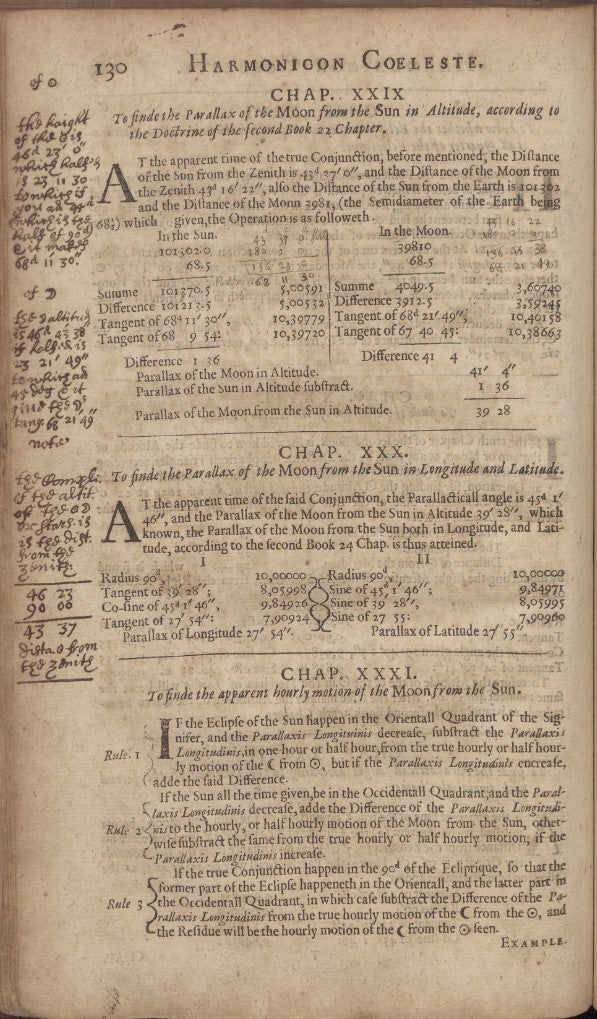 130 HARMONICON COELESTE.
CHAP. XXIX
To finde the Parallax of the Moon from the Sun in Altitude, according to
the Doctrine of the second Book 22 Chapter.
AT the apparent time of the true Conjunction, before mentioned, the Distance
of the Sun from the Zenith is 43d 37′ 0″, and the Distance of the Moon from
the Zenith 43d 16′ 22″, also the Distance of the Sun from the Earth is 101302
and the Distance of the Monn 3981, (the Semidiameter of the Earth being
68½) which given, the Operation is as followeth.
In the Sun.
101302.0
68.5
Summe 101370.5 5,00591
Difference 101213.5 5,00532
Tangent of 68d 11′ 30″, 10,39779
Tangent of 68 9 54: 10,39720
Difference 1 36
In the Moon.
39810
68.5
Summe 4049.5 3,60740
Difference 3912.5 3,59245
Tangent of 68d. 21′ 49″; 10,40158
Tangent of 67 40 45: 10,38663
Difference 41 4
Parallax of the Moon in Altitude. 41′ 4″
Parallax of the Sun in Altitude substract. 1 36
Parallax of the Moon from the Sun in Altitude. 39 28
CHAP. XXX.
To finde the Parallax of the Moon from the Sun in Longitude and Latitude.
AT the apparent time of the said Conjunction, the Parallacticall angle is 45d 1′
46″, and the Parallax of the Moon from the Sun in Altitude 39′ 28″, which
known, the Parallax of the Moon from the Sun both in Longitude, and Lati-
tude, according to the second Book 24 Chap. is thus atteined.
I
Radius 90d, 10,00000
Tangent of 39′ 28″; 8,05998
Co-sine of 45d 1′ 46″, 9,84926
Tangent of 27′ 54″: 7,90924
Parallax of Longitude 27′ 54″.
II
Radius 90d, 10,00000
Sine of 45d, 1′ 46″; 9,84971
Sine of 39′ 28″, 8,05995
Sine of 27 55: 7,90960
Parallax of Latitude 27′ 55″
CHAP. XXXI.
To finde the apparent hourly motion of the Moon from the Sun.
Rule. 1
IF the Eclipse of the Sun happen in the Orientall Quadrant of the Sig-
nifer, and the Parallaxis Longituinis decrease, substract the Parallaxis
Longitudinis, in one hour or half hour, from the true hourly or half hour-
ly motion of the ☾ from ☉, but if the Parallaxis Longitudinis encrease,
adde the said Difference.
Rule 2
If the Sun all the time given, be in the Occidentall Quadrant, and the Paral-
laxis Longitudinis decrease, adde the Difference of the Parallaxis Longitudi-
nis to the hourly, or half hourly motion of the Moon from the Sun, other-
wise substract the same from the true hourly or half hourly motion, if the
Parallaxis Longitudinis increase.
Rule 3
If the true Conjunction happen in the 90d of the Ecliprique, so that the
former part of the Eclipse happeneth in the Orientall, and the latter part in
the Occidentall Quadrant, in which case substract the Difference of the Pa-
rallaxis Longitudinis from the true hourly motion of the ☾ from the ☉, and
the Residue will be the hourly motion of the ☾ from the ☉ seen.
EXAMPLE.
of ☉
the height
of the ☉ is
46d 23′ 0″
which half is
is 23 11 30
to which if
you ad 45d
which is the
half of 90d
it makes
68d 11′ 30″.
of ☽
is 46d 43′ 38″
23 21′ 49″
note
of the altit.
of the ☉ ☽
or Stars is
is the dist.
from the
Zenith.
46 23
90 00
43 37
dista ☉ from
the Zenith